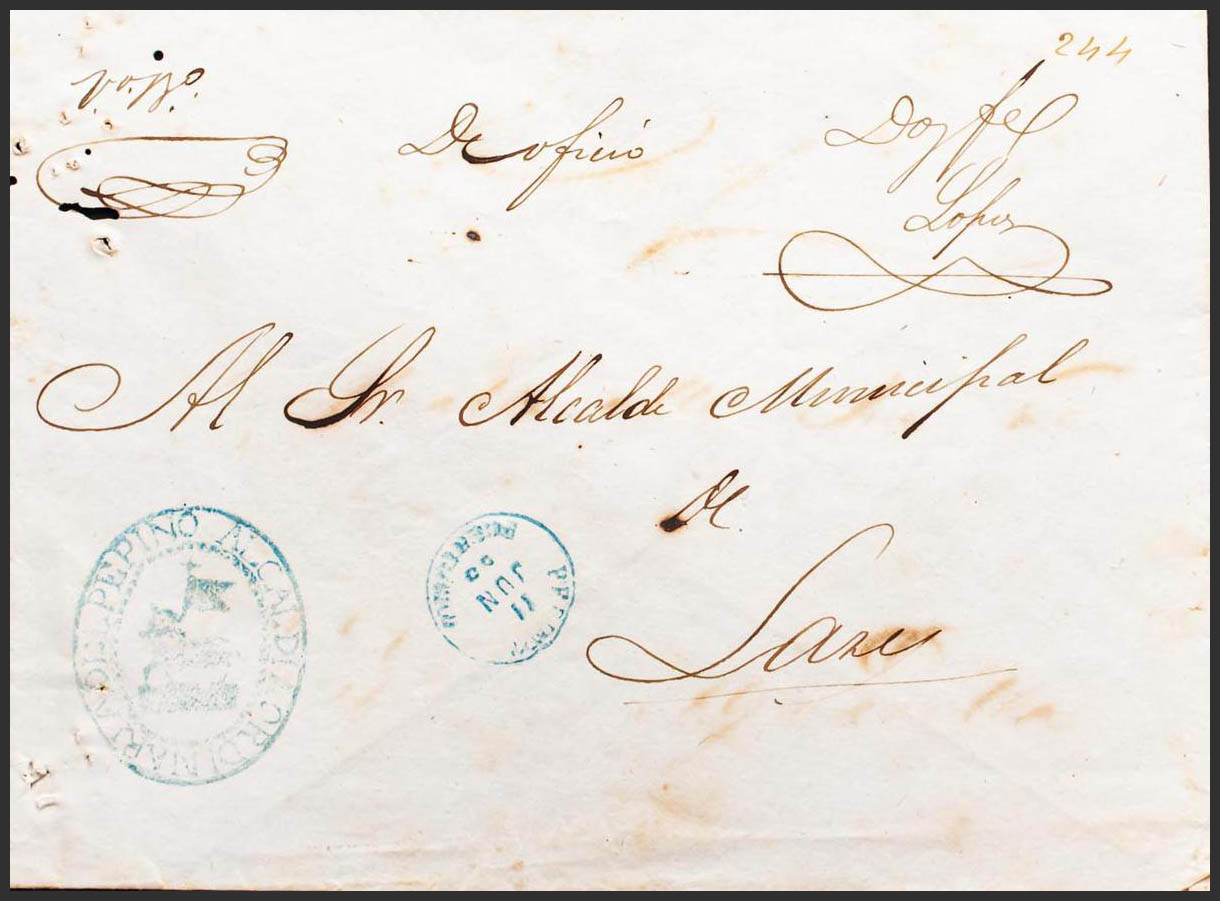 244
Vo. Bo.
De oficio
Doy fe
Lopez
Al Sr. Alcalde Municipal
de
Lares
ALCALDE ORDINARIO DE PEPINO
PEPINO
11
JUN